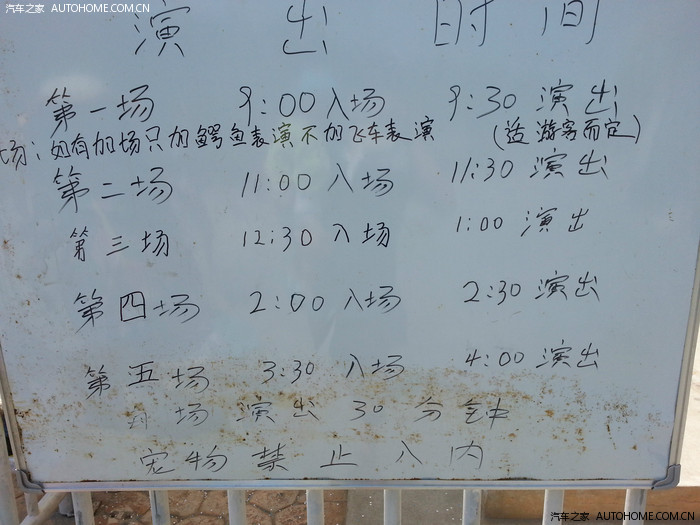 汽车之家 AUTOHOME.COM.CN
演出时间
第一场 9:00入场 9:30 演出
场:如有加场只加鳄鱼表演不加飞车表演 (适游客而定)
第二场 11:00 入场 11:30 演出
第三场 12:30 入场 1:00 演出
第四场 2:00 入场 2:30 演出
第五场 3:30 入场 4:00 演出
场演出30分钟
宠物禁止入内
汽车之家 AUTOHOME.COM.CN